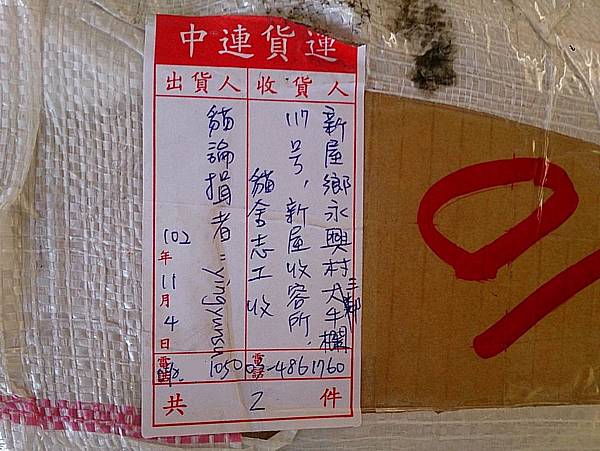 中連貨運
收貨人
出貨人
新屋鄉永興村三鄰大牛欄
117号,新屋收容所.
貓舍志工收
貓論損者"yingyunsu
102年11月4日
電話 03-4861760
1050
共 2 件